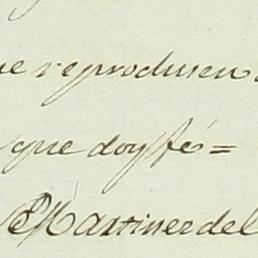 ue reprodusen
que doy fé =
Martinez del